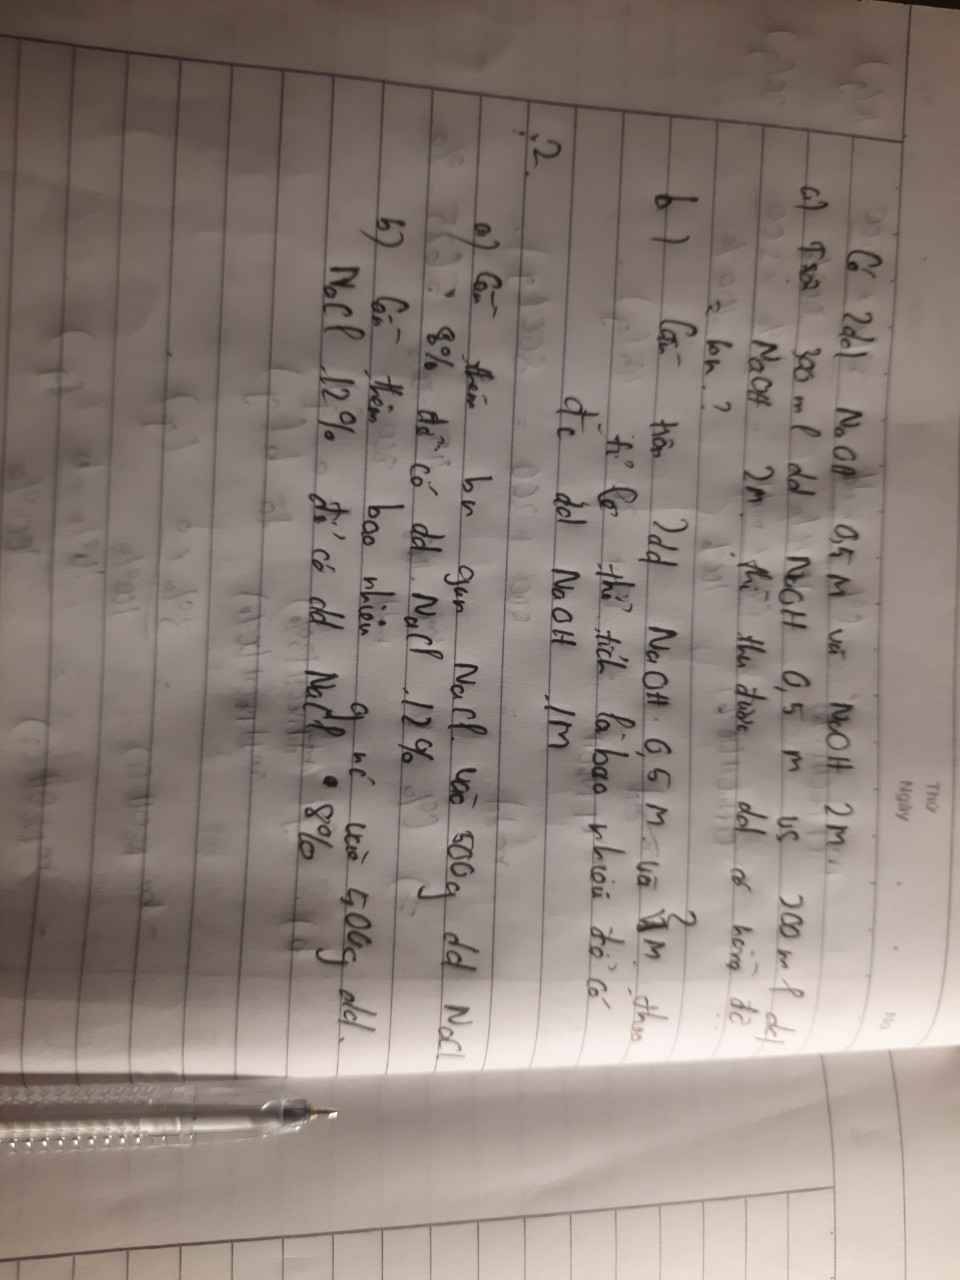 Thứ
Ngày
No
Có 2dd NaOH 0,5M và NaOH 2M.
a) Trộn 300ml dd NaOH 0,5M vs 200ml dd
NaOH 2M thì thu được dd có nồng độ
= bn?
b) Cần trộn 2dd NaOH 0,5M và 2M theo
tỉ lệ thể tích là bao nhiêu để có
đc dd NaOH 1M
2.
a) Cần thêm bn gam NaCl vào 500g dd NaCl
8% để có dd NaCl 12%
b) Cần thêm bao nhiêu g nc vào 500g dd
NaCl 12% để có dd NaCl 8%